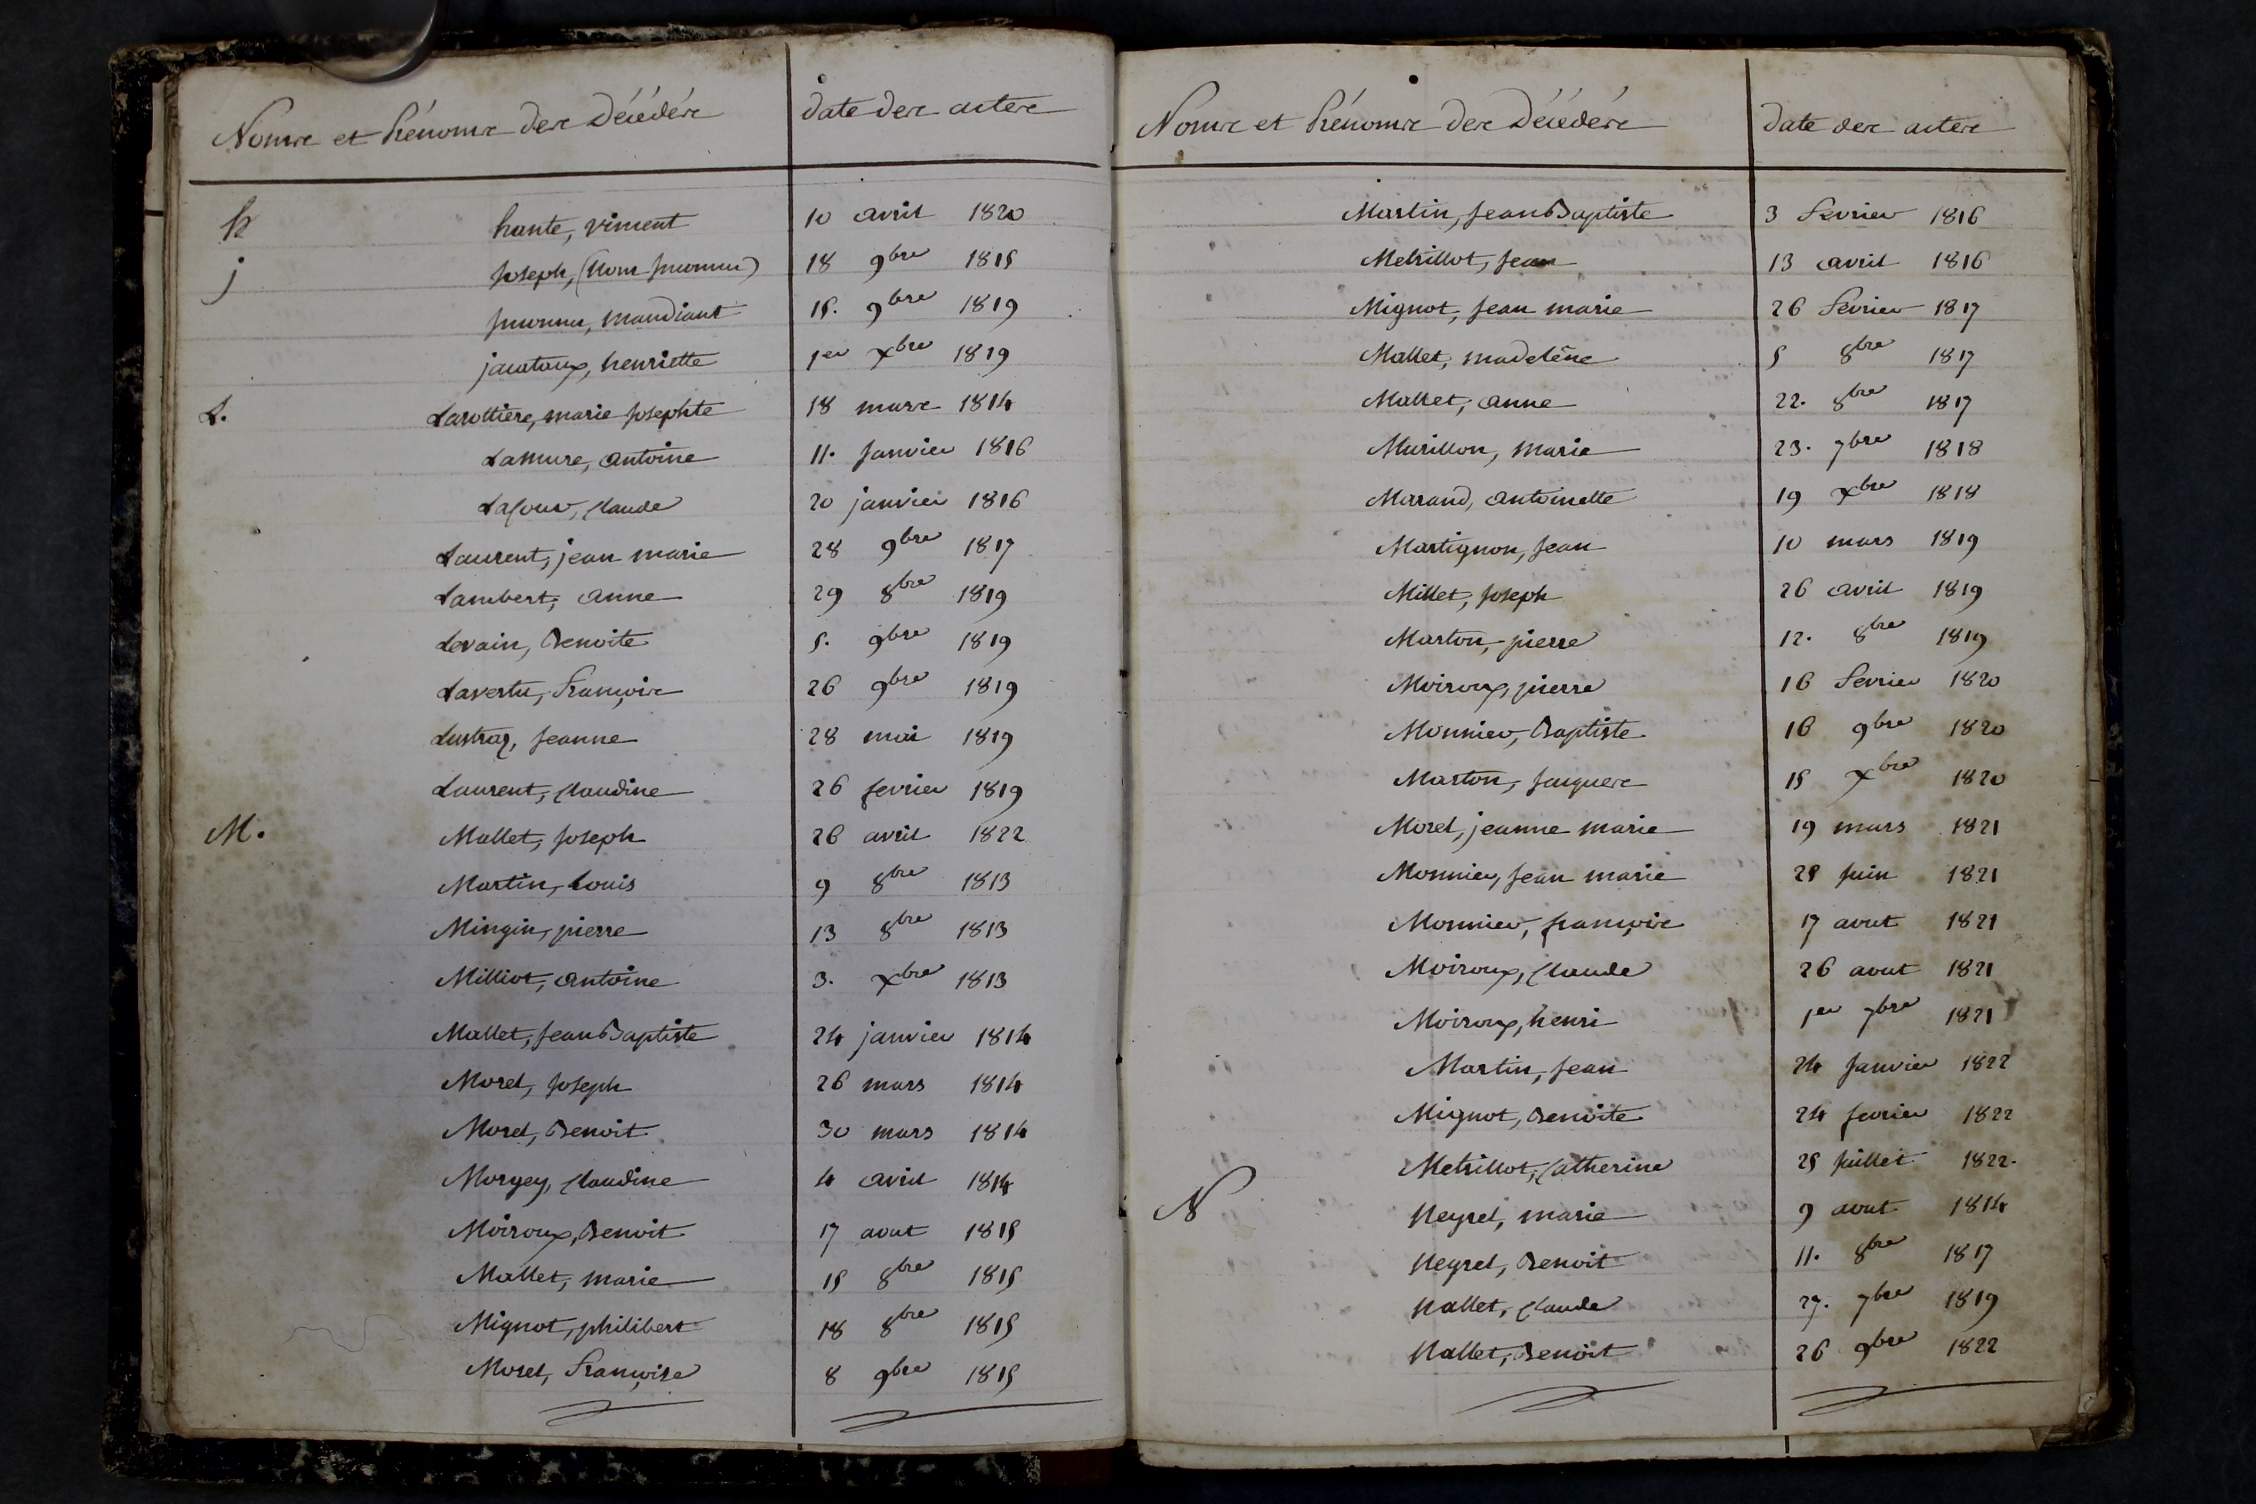 Noms et Prénoms des Décédés date des actes
h hante, vincent 10 avril 1820
j Joseph, (Nom Inconnu) 18 9bre 1815
Inconnu, mandiant 15. 9bre 1819
jacatoux, henriette 1er Xbre 1819
L. Larottière, marie Josephte 18 mars 1814
Lamure, antoine 11. Janvier 1816
Lafour, Claude 20 janvier 1816
Laurent, jean marie 28 9bre 1817
Lambert, anne 29 8bre 1819
Levain, Benoite 5. 9bre 1819
Lavertu, François 26 9bre 1819
Lustraz, Jeanne 28 mai 1819
Laurent, Claudine 26 fevrier 1819
M. Mallet, Joseph 26 avril 1822
Martin, Louis 9 8bre 1813
Mingin, pierre 13 8bre 1813
Milliot, antoine 3. Xbre 1813
Mallet, Jean Baptiste 24 janvier 1814
Morel, Joseph 26 mars 1814
Morel, Benoit 30 mars 1814
Morgey, Claudine 4 avril 1814
Moiroux, Benoit 17 aout 1815
Mallet, marie 15 8bre 1815
Mignot, philibert 18 8bre 1815
Morel, Françoise 8 9bre 1815
Noms et Prénoms des Décédés date des actes
Martin, Jean Baptiste 3 Fevrier 1816
Metrillot, Jean 13 avril 1816
Mignot, Jean marie 26 Fevrier 1817
Mallet, madelène 5 8bre 1817
Mallet, anne 22. 8bre 1817
Murillon, marie 23. 7bre 1818
Marrand, antoinette 19 Xbre 1818
Martignon, Jean 10 mars 1819
Millet, Joseph 26 avril 1819
Marton, pierre 12. 8bre 1819
Moiroux, pierre 16 Fevrier 1820
Monnier, Baptiste 16 9bre 1820
Marton, Jacques 15 Xbre 1820
Morel, jeanne marie 19 mars 1821
Monnier, Jean marie 25 Juin 1821
Monnier, françois 17 aout 1821
Moiroux, Claude 26 aout 1821
Moiroux, henri 1er 7bre 1821
Martin, Jean 24 Janvier 1822
Mignot, Benoite 24 fevrier 1822
Metrillot, Catherine 25 Juillet 1822.
N Neyret, marie 9 aout 1814
Neyret, Benoit 11. 8bre 1817
Nallet, Claude 27. 7bre 1819
Nallet, Benoit 26 9bre 1822